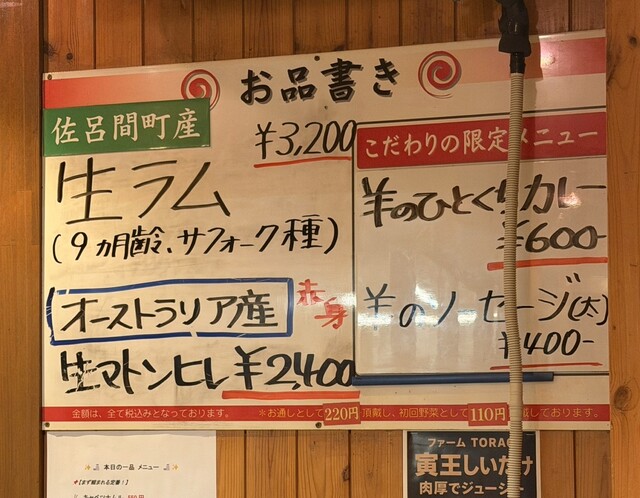 お品書き
佐呂間町産
¥3,200
生ラム
(9ヵ月齢、サフォーク種)
オーストラリア産
赤身
生マトンヒレ ¥2,400
こだわりの限定メニュー
羊のひとくちカレー
¥600-
羊のソーセージ(大)
¥400-
金額は、全て税込みとなっております。
※お通しとして220円頂戴し、初回野菜として110円 戴しております。
本日の一品 メニュー
ファーム TORAO
寅王しいたけ
肉厚でジューシー